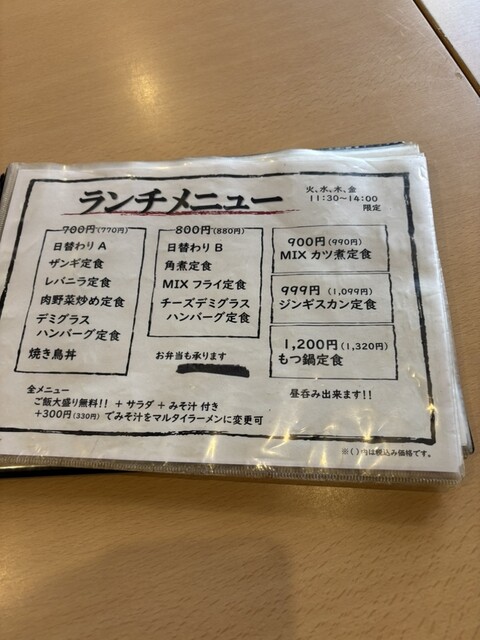 ランチメニュー
火、水、木、金
11:30～14:00
限定
700円(770円)
日替わり A
ザンギ定食
レバニラ定食
肉野菜炒め定食
デミグラス
ハンバーグ定食
焼き鳥丼
800円(880円)
日替わり B
角煮定食
MIX フライ定食
チーズデミグラス
ハンバーグ定食
お弁当も承ります
900円(990円)
MIX カツ煮定食
999円(1,099円)
ジンギスカン定食
1,200円(1,320円)
もつ鍋定食
昼呑み出来ます!!
全メニュー
ご飯大盛り無料!! + サラダ + みそ汁 付き
+300円(330円) でみそ汁をマルタイラーメンに変更可
※( )内は税込み価格です。